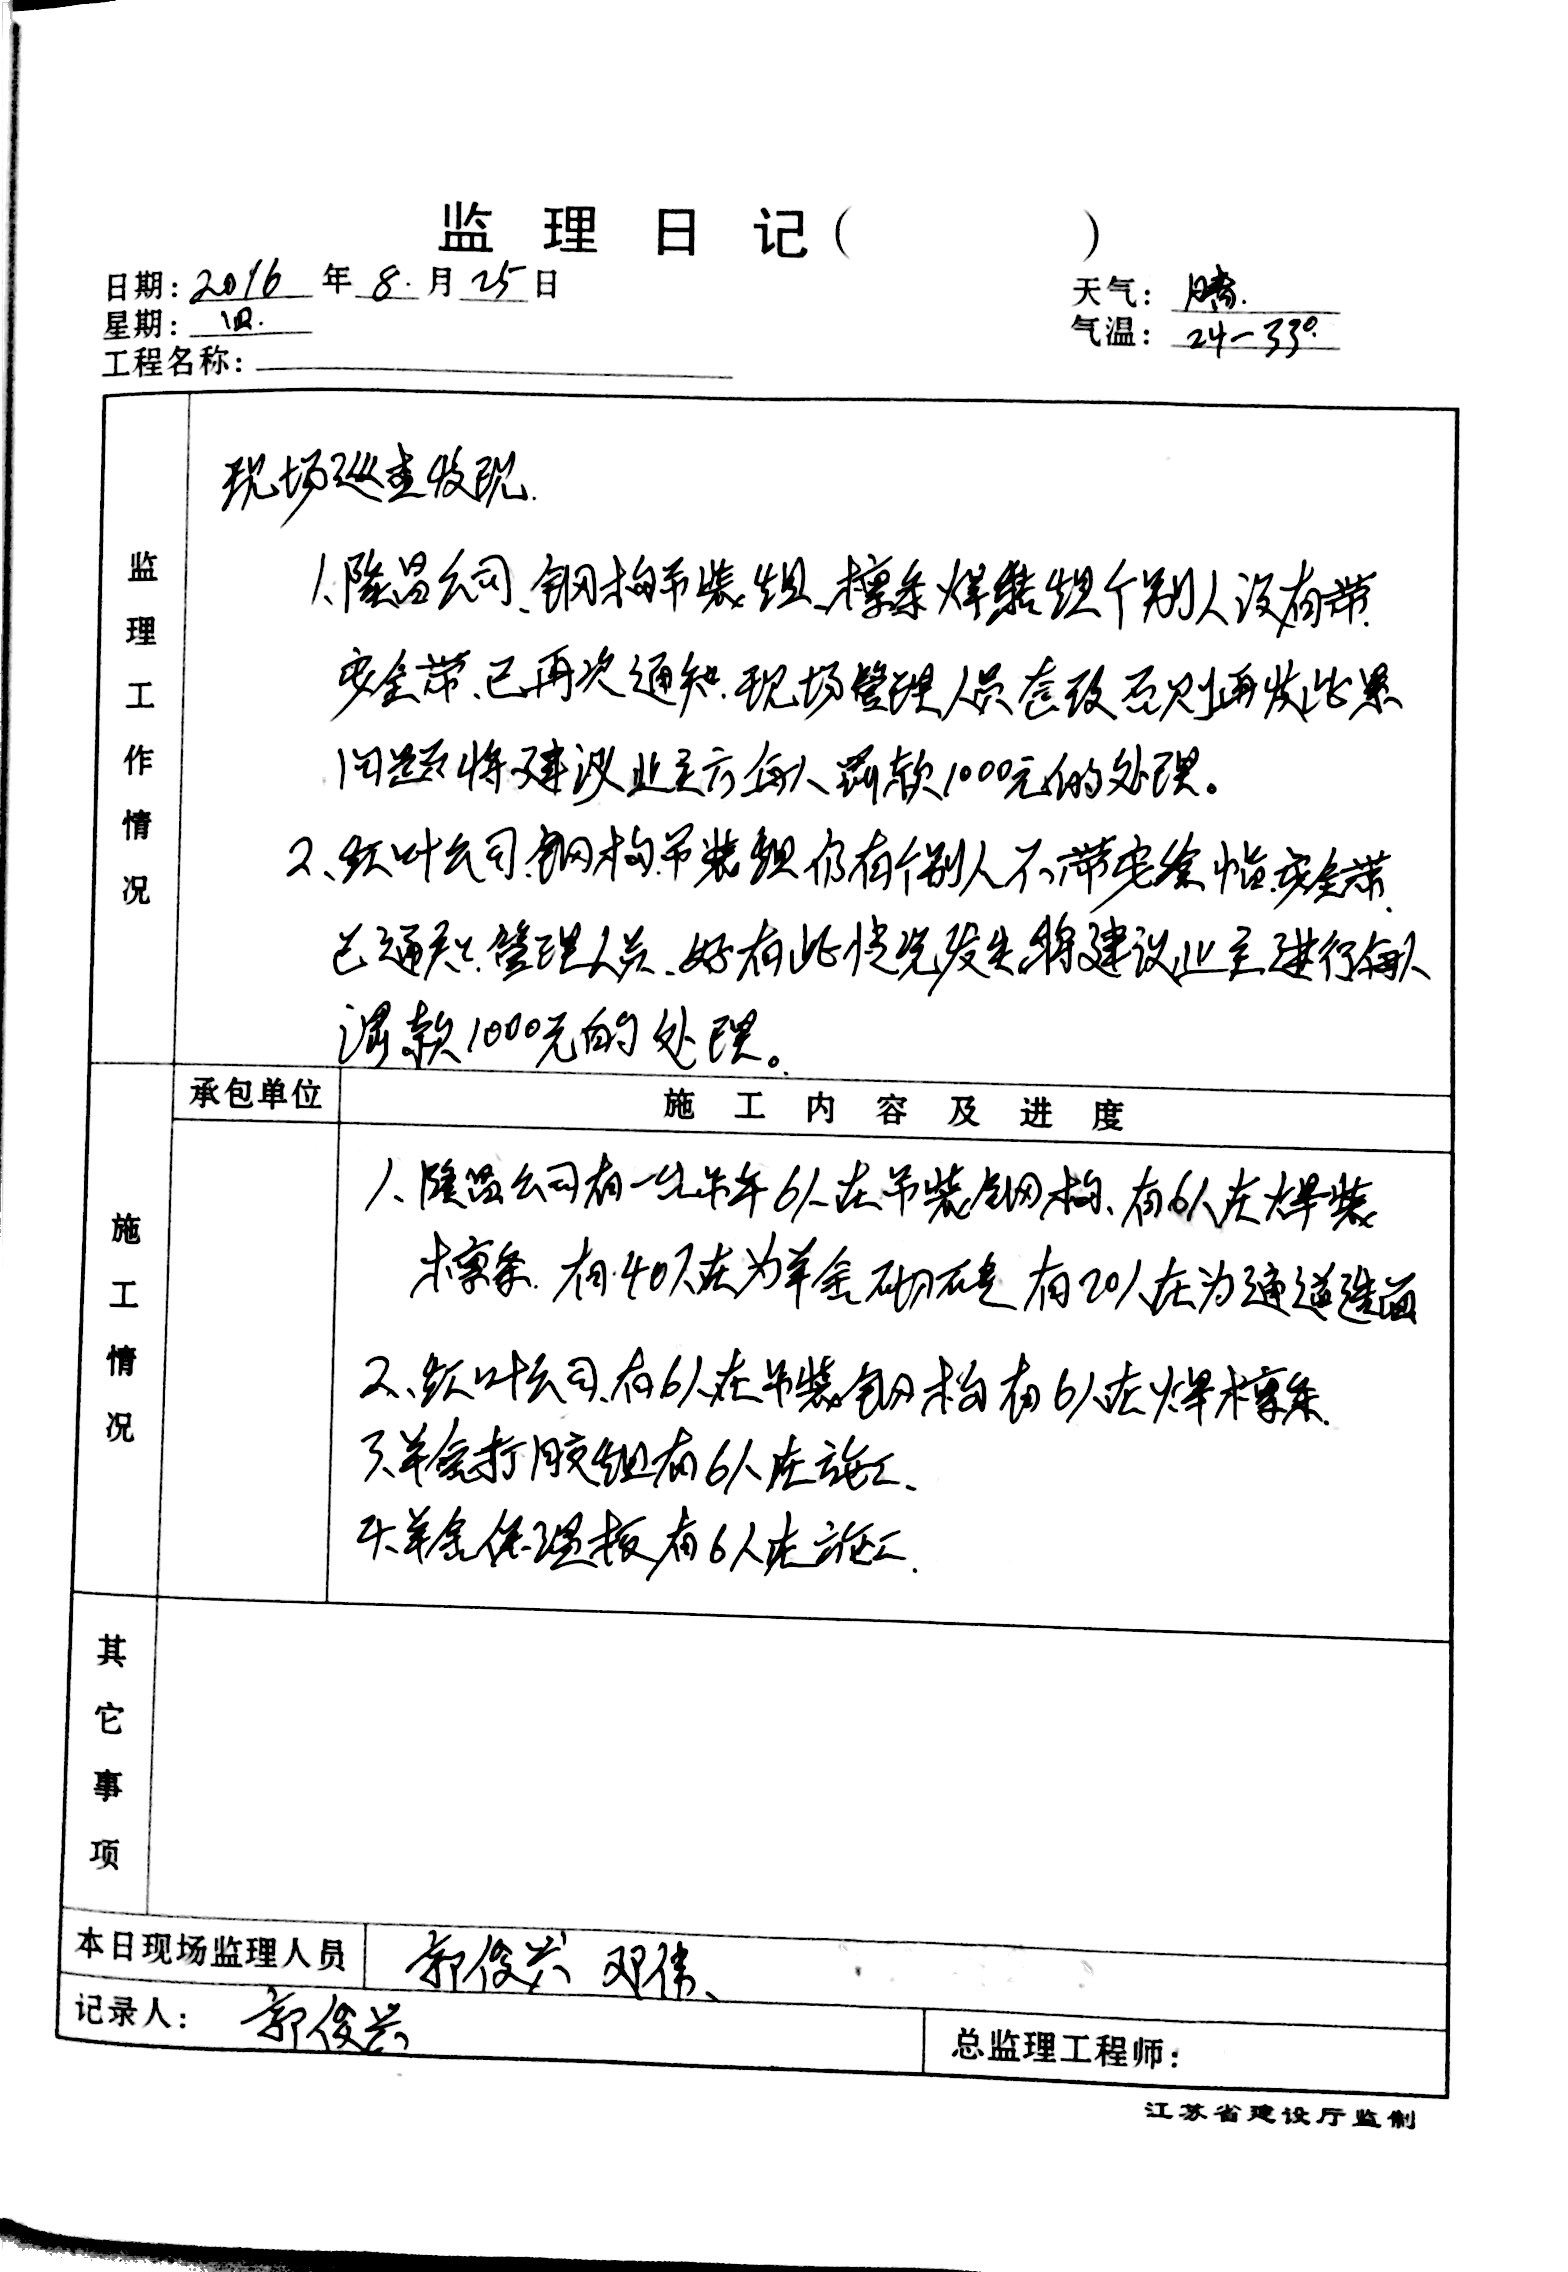 监理日记(    )
日期: 2016 年 8 月 25 日
天气: 晴.
星期: 四.
气温: 24-33°
工程名称:
监理工作情况
现场巡查发现.
1、隆昌公司、钢构吊装组、檩条焊装组个别人没有带
安全带、已再次通知.现场管理人员 改否则再发此累
问题将建议业主方每人罚款1000元的处理。
2、红叶公司.钢构吊装组仍有个别人不带安全帽.安全带.
已通知.管理人员、好有此情况发生将建议业主进行每人
罚款1000元的处理。
承包单位
施工内容及进度
施工情况
1、隆昌公司有一台吊车6人在吊装钢构、有6人在焊装
檩条.有40人在为羊舍砌砖 有20人在为通道 面
2、红叶公司.有6人在吊装钢构有6人在焊檩条.
3.羊舍打胶组有6人在施工、
4.羊舍保温板有6人在施工.
其它事项
本日现场监理人员
郭俊兴 邓伟、
记录人: 郭俊兴
总监理工程师:
江苏省建设厅监制